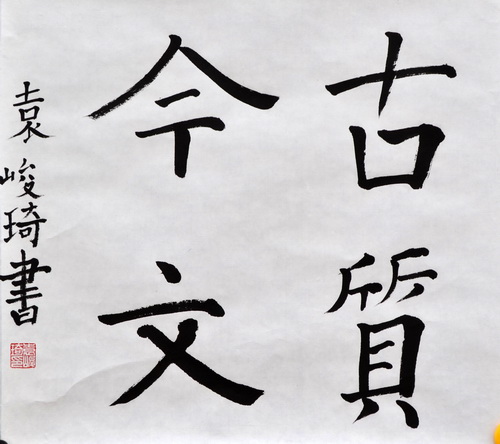 古質
今文
袁峻琦書